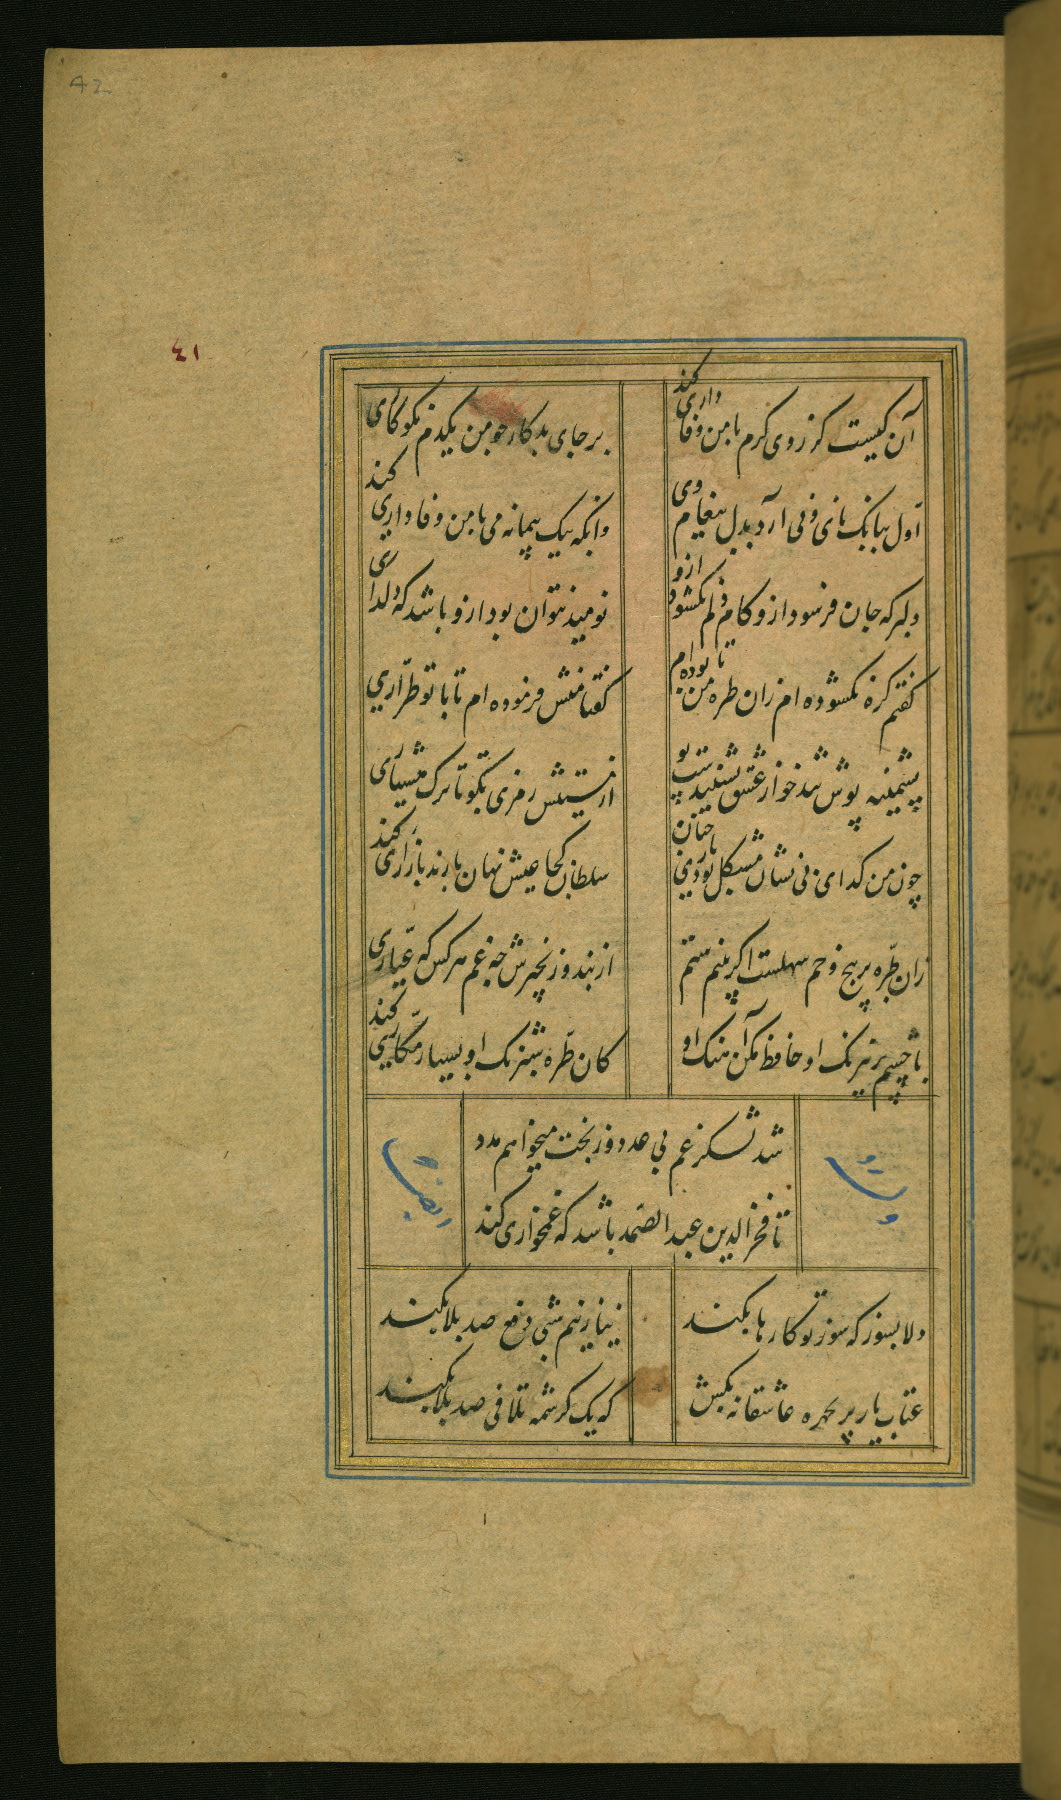 42
٤١
آن کیست کز روی کرم با من وفاداری کند
بر جای بدکار چو من یکدم نکوکاری کند
اول ببانک نای و نی ارد بدل پیغام وی
وانکه بیک پیمانه می با من وفاداری
دلبر که جان فرسود ازو کام دلم نکشود ازو
نومید نتوان بود ازو باشد که دلداری
کفتم کره نکشوده ام زان طره تا من بوده ام
کفتا منش فرموده ام تا با تو طراری
پشمینه پوش تندخو از عشق نشنیدست بو
از مستیش رمزی بکو تا ترک هشیاری کند
چون من کدای بی نشان مشکل بود یاری چنان
سلطان کجا عیش نهان با رند بازاری
زان طره پر پیچ و خم سهلست اکر بینم ستم
از بند و زنجیرش چه غم هر کس که عیاری کند
با چشم پر نیرنک او حافظ مکن آهنک او
کان طره شبرنک او بسیار مکاری
شد لشکر غم بی عدد وز بخت میخواهم مدد
تا فخرالدین عبدالصمد باشد که غمخواری کند
وله ایضا
دلا بسوز که سوز تو کارها بکند
نیاز نیم شبی دفع صد بلا بکند
عتاب یار پریچهره عاشقانه بکش
که یک کرشمه تلافی صد بلا بکند